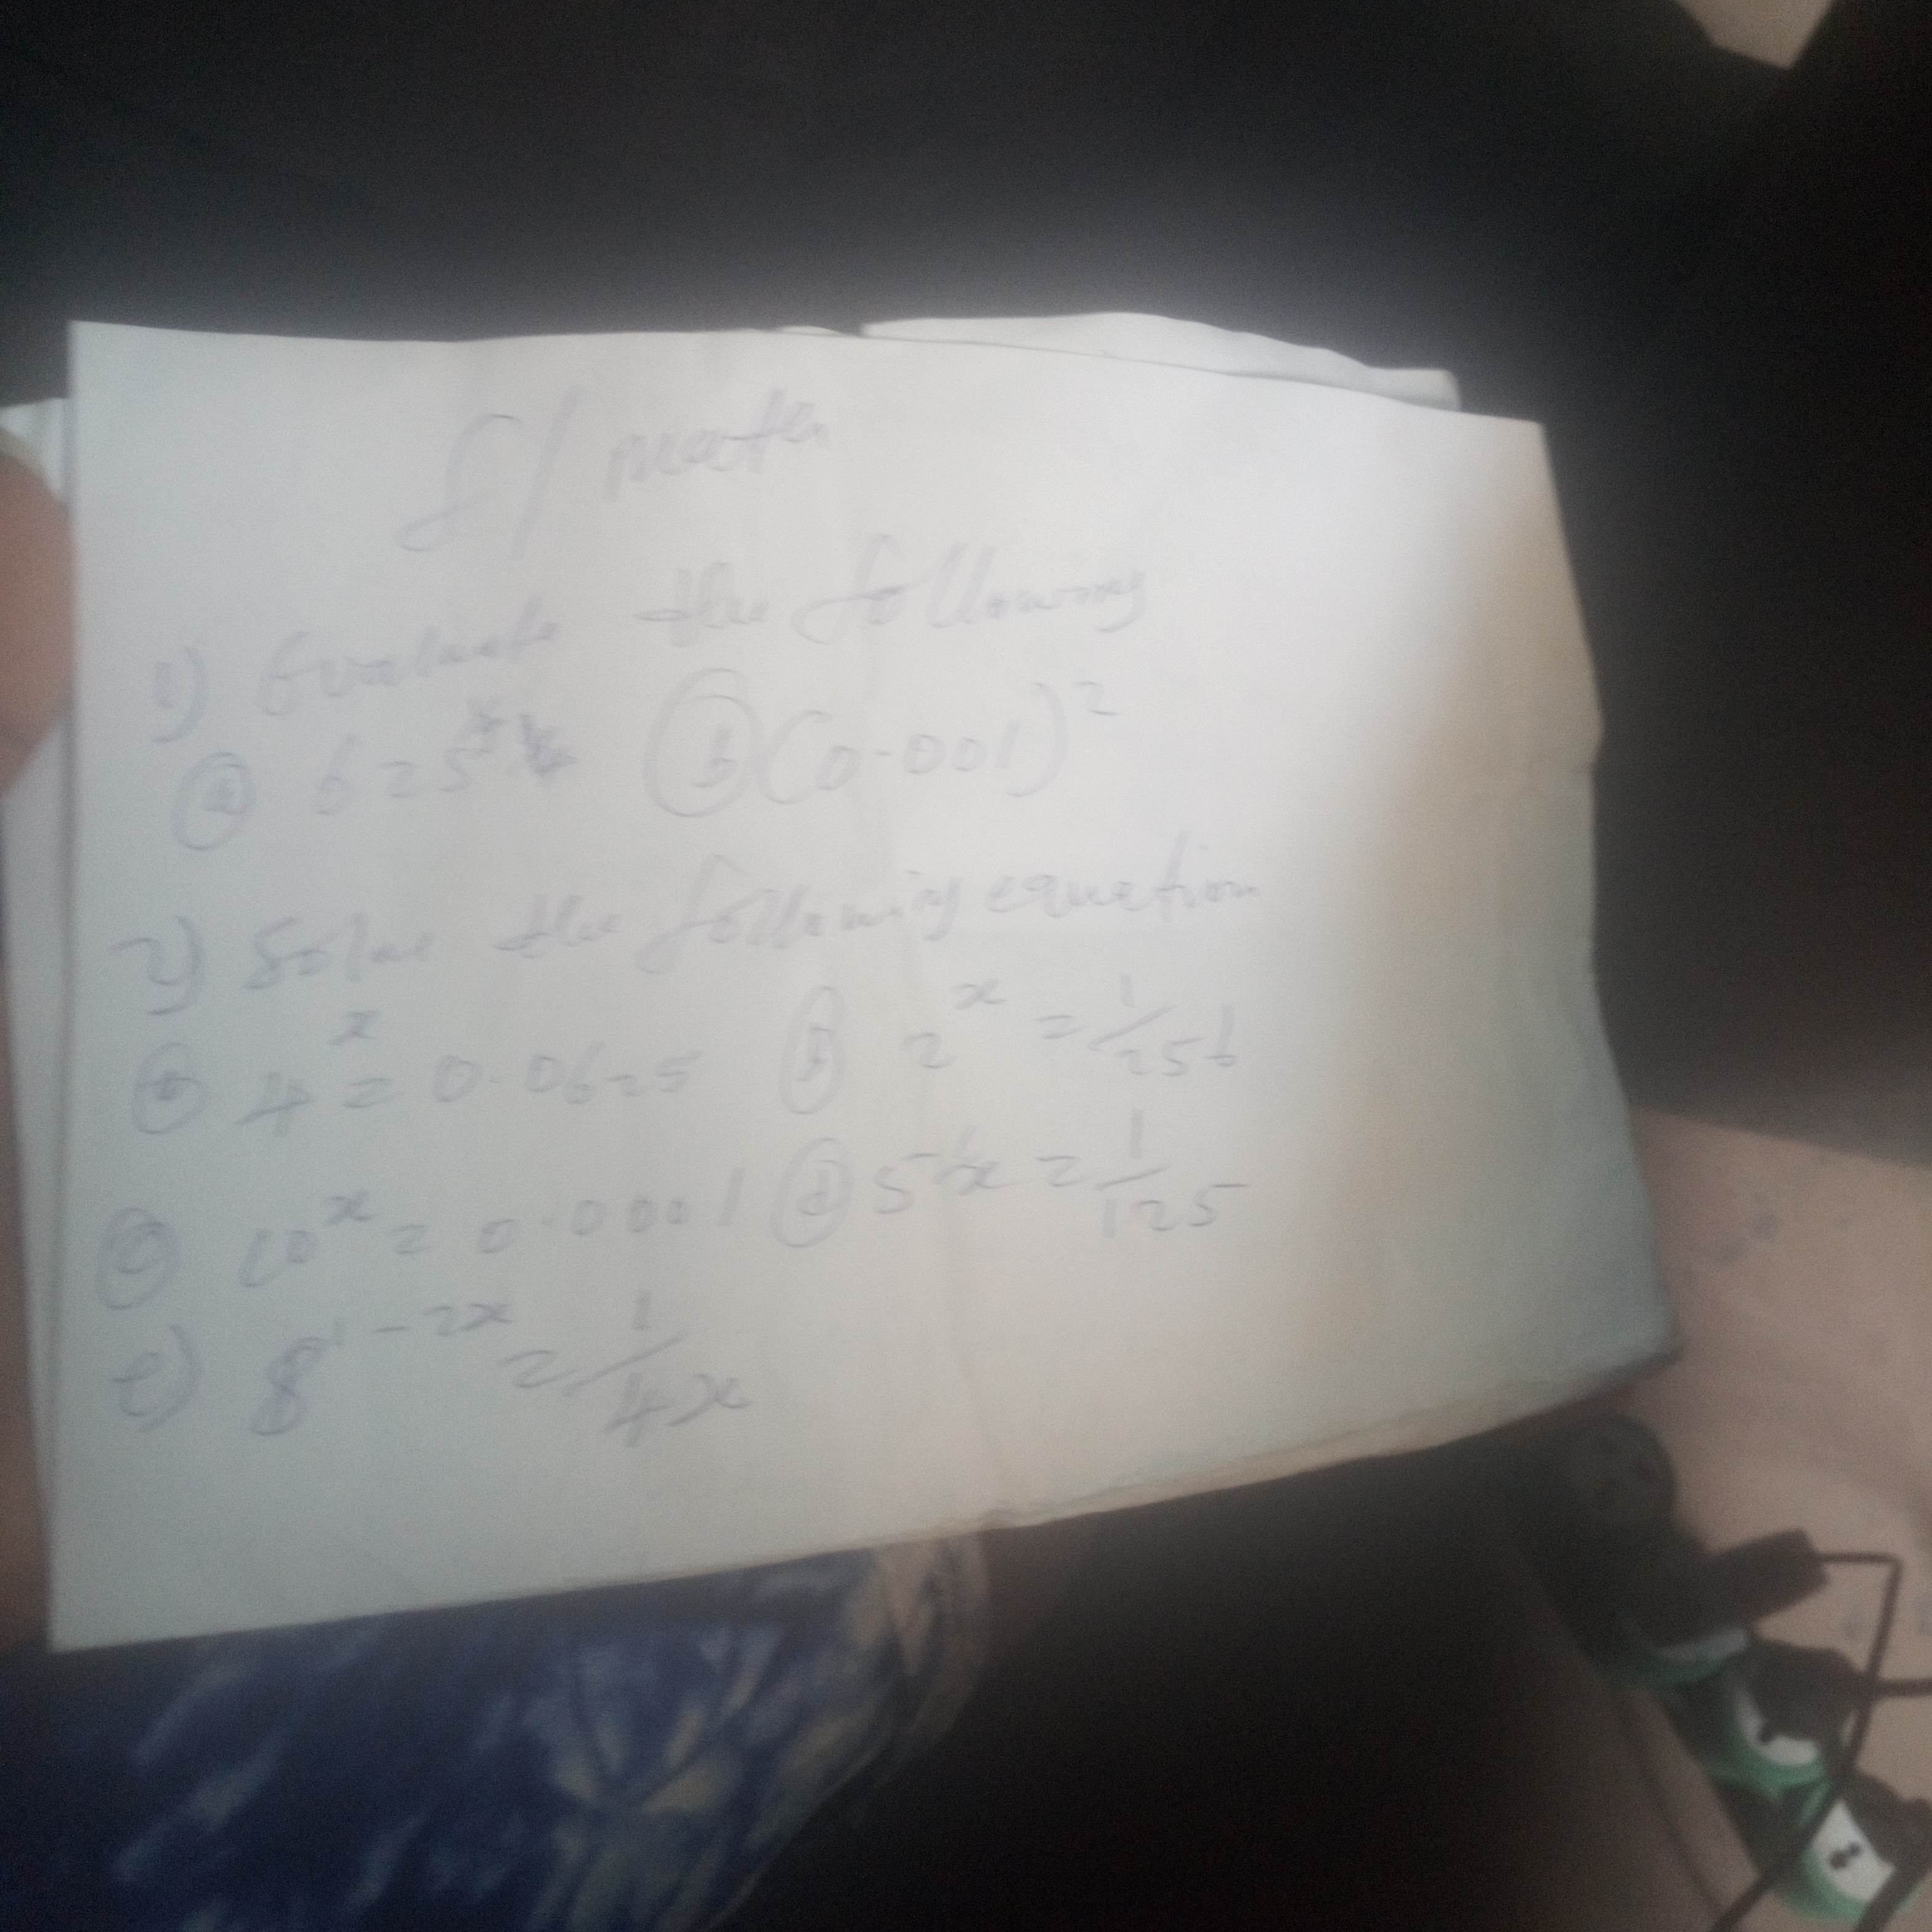 f/ maths
1) Evaluate the following
(a) 625 (b) (0.001)²
2) Solve the following equation
(a) 4ˣ = 0.0625 (b) 2ˣ = 1/256
(c) 10ˣ = 0.0001 (d) 5 x = 1/125
e) 8¹⁻²ˣ = 1/4x